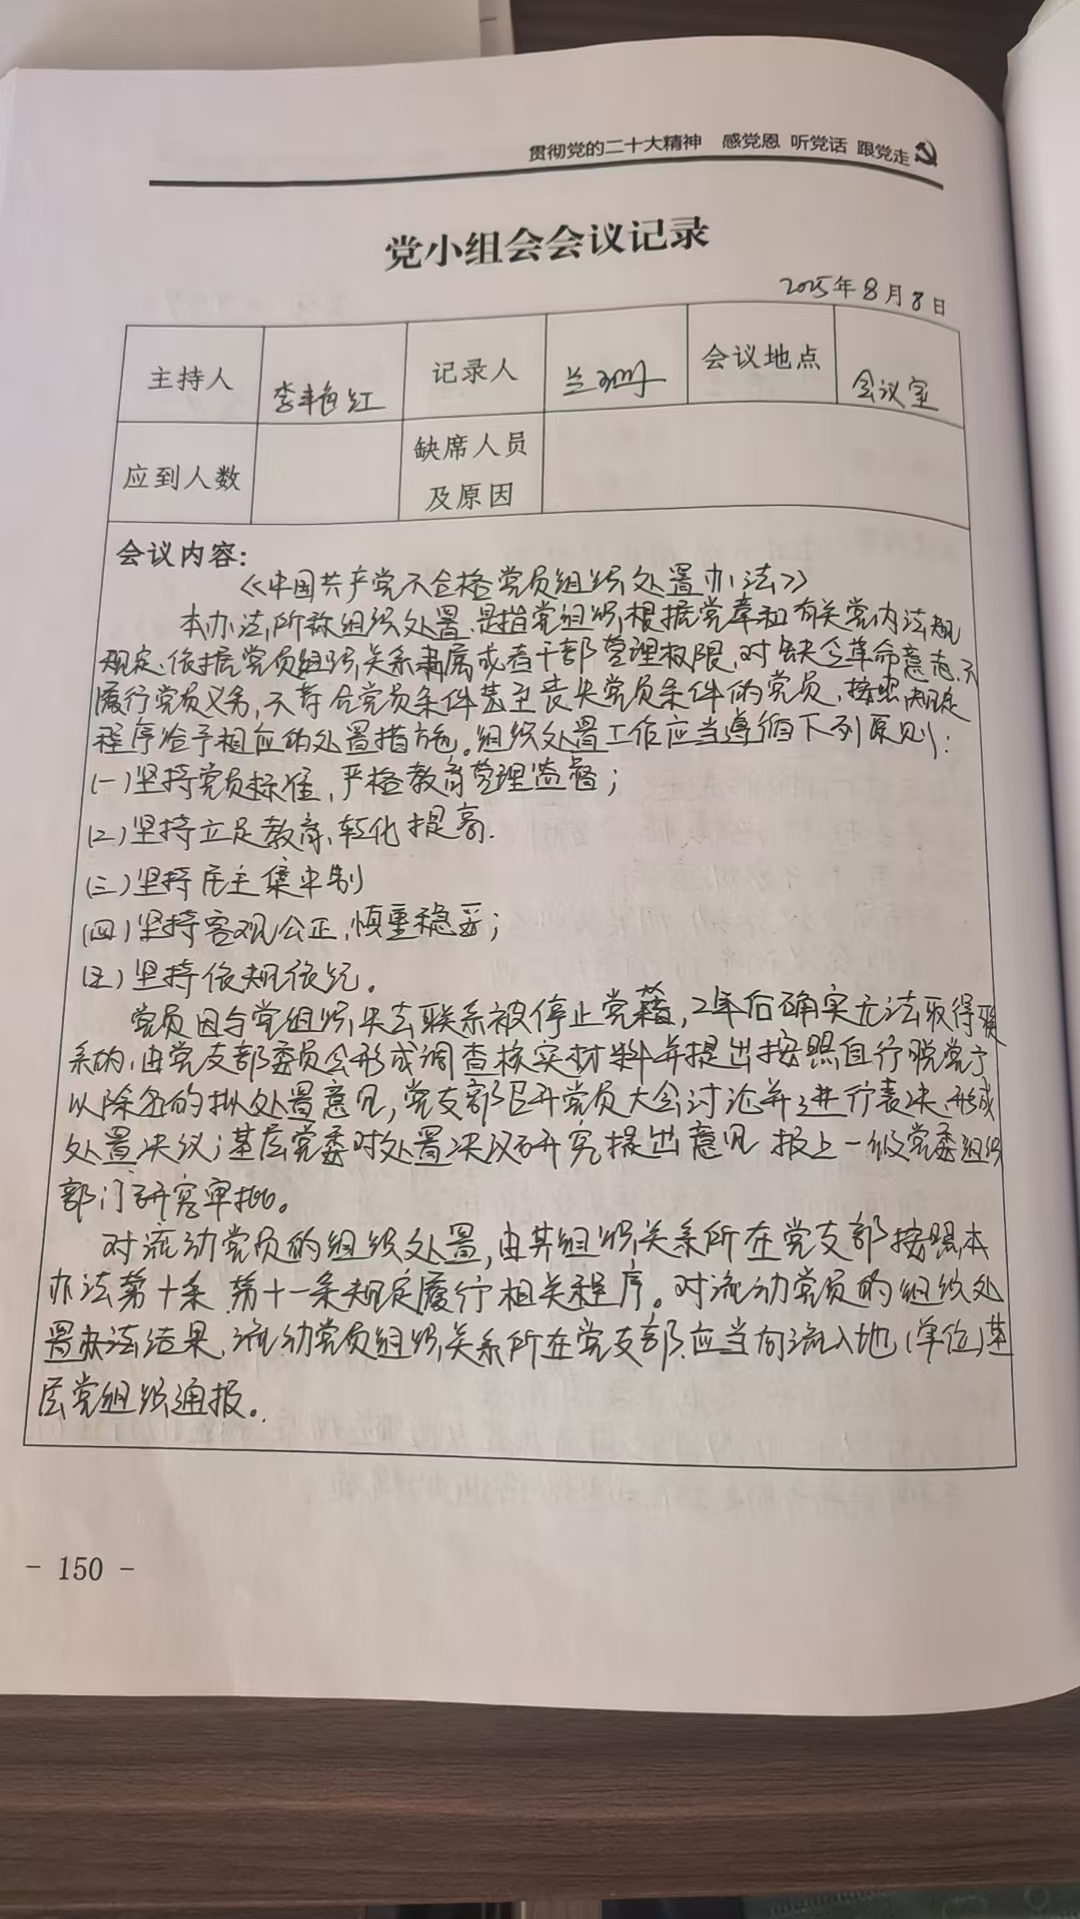 贯彻党的二十大精神 感党恩 听党话 跟党走
党小组会会议记录
2025年8月8日
主持人 李艳红 记录人 会议地点 会议室
应到人数 缺席人员及原因
会议内容:
《中国共产党不合格党员组织处置办法》
本办法所称组织处置,是指党组织根据党章和有关党内法规
规定,依据党员组织关系隶属或者干部管理权限,对缺乏革命意志,不
履行党员义务,不符合党员条件甚至丧失党员条件的党员,按照规定
程序给予相应的处置措施。组织处置工作应当遵循下列原则:
(一)坚持党员标准,严格教育管理监督;
(2)坚持立足教育,转化提高.
(三)坚持民主集中制
(四)坚持客观公正,慎重稳妥;
(五)坚持依规依纪。
党员因与党组织失去联系被停止党籍,2年后确实无法取得联
系的,由党支部委员会形成调查核实材料并提出按照自行脱党予
以除名的拟处置意见,党支部召开党员大会讨论并进行表决,形成
处置决议;基层党委对处置决议研究提出意见 报上一级党委组织
部门研究审批。
对流动党员的组织处置,由其组织关系所在党支部按照本
办法第十条 第十一条规定履行相关程序。对流动党员的组织处
置办法结果,流动党员组织关系所在党支部,应当向流入地(单位)基
层党组织通报。
- 150 -